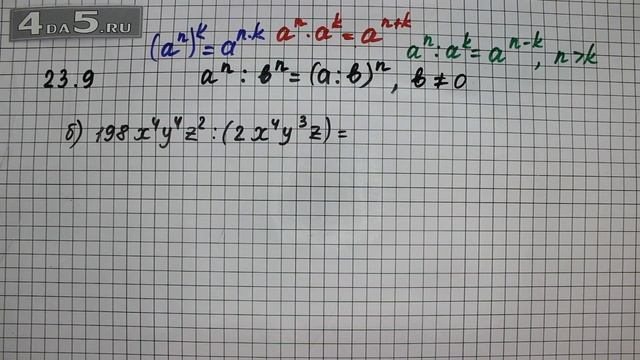 4DA5.RU
(aⁿ)ᵏ = aⁿ·ᵏ aⁿ · aᵏ = aⁿ⁺ᵏ
aⁿ : aᵏ = aⁿ⁻ᵏ, n > k
23.9 aⁿ : вⁿ = (a : в)ⁿ, в ≠ 0
б) 198x⁴y⁴z² : (2x⁴y³z) =